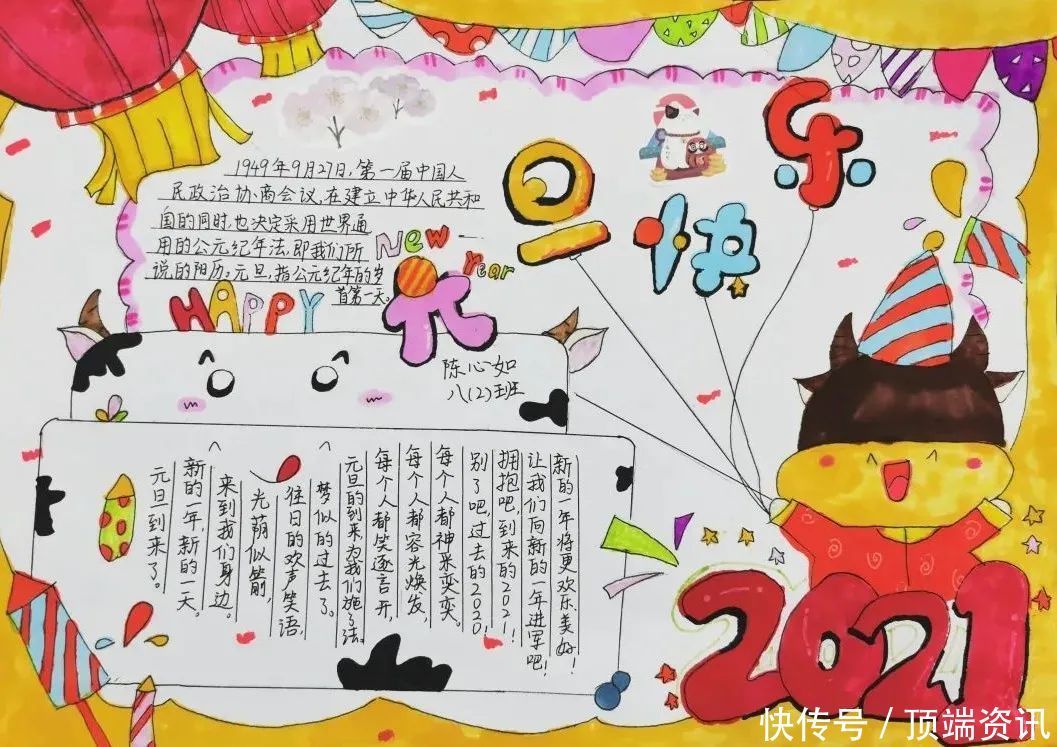 1949年9月27日,第一届中国人
民政治协商会议,在建立中华人民共和
国的同时,也决定采用世界通
用的公元纪年法,即我们所
说的阳历。元旦,指公元纪年的岁
首第一天。
New Year
HAPPY
元旦快乐
陈心如
八(2)班
元旦到来了。
新的一年,新的一天。
来到我们身边。
光荫似箭,
往日的欢声笑语,
梦似的过去了。
元旦的到来为我们施了法。
每个人都笑逐言开,
每个人都容光焕发,
每个人都神采奕奕。
别了吧,过去的2020!
拥抱吧,到来的2021!
让我们向新的一年进军吧!
新的一年将更欢乐美好!
2021
快传号/顶端资讯